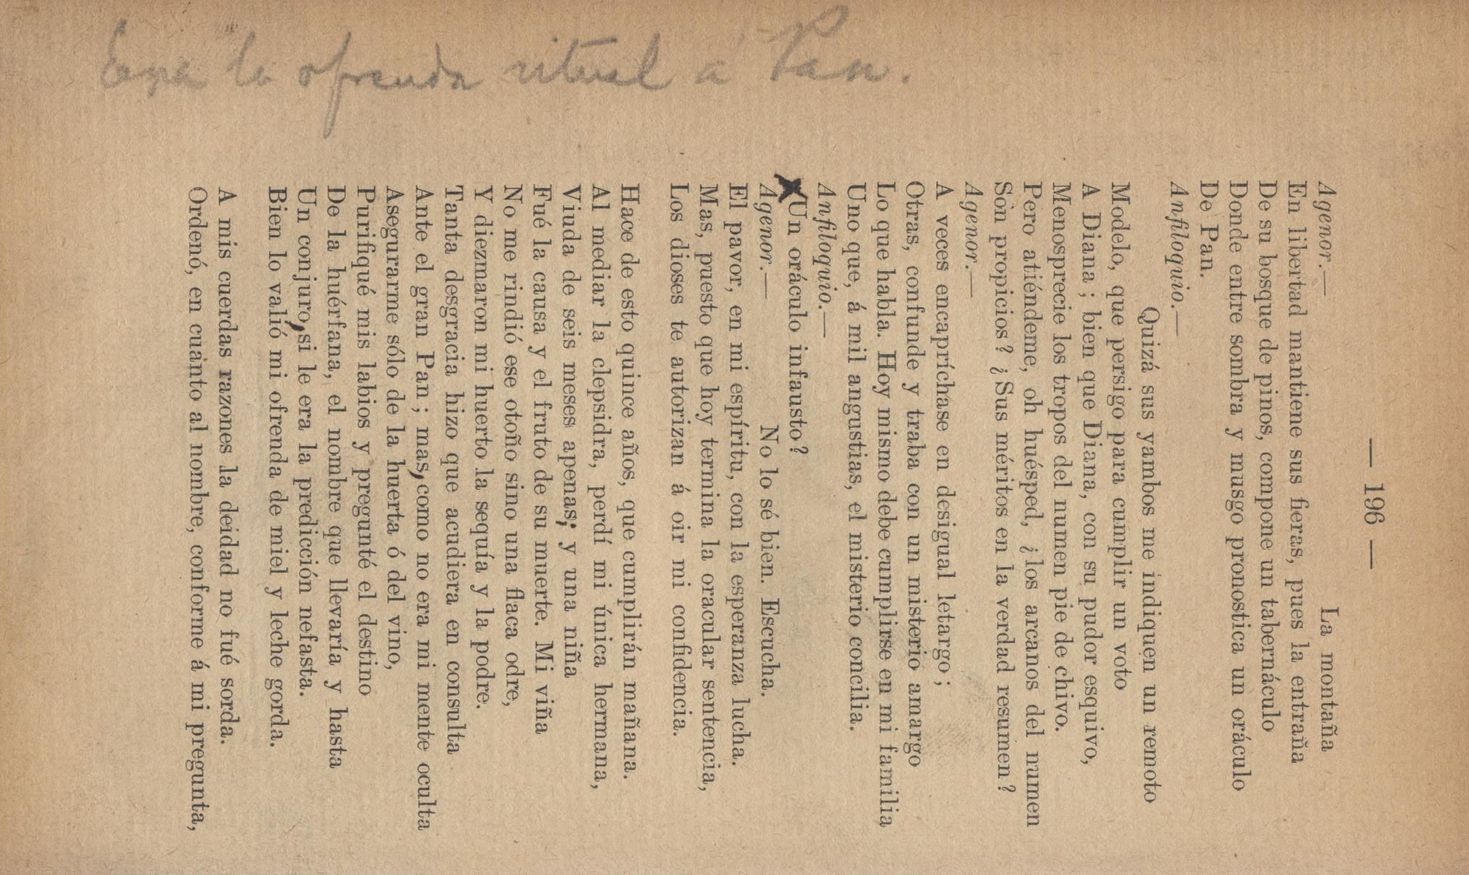 — 196 —
La montaña
Agenor.—
En libertad mantiene sus fieras, pues la entraña
De su bosque de pinos, compone un tabernáculo
Donde entre sombra y musgo pronostica un oráculo
De Pan.
Anfiloquio.—
Quizá sus yambos me indiquen un remoto
Modelo, que persigo para cumplir un voto
A Diana; bien que Diana, con su pudor esquivo,
Menosprecie los tropos del numen pie de chivo.
Pero atiéndeme, oh huésped, ¿los arcanos del numen
Son propicios? ¿Sus méritos en la verdad resumen?
Agenor.—
A veces encapríchase en desigual letargo;
Otras, confunde y traba con un misterio amargo
Lo que habla. Hoy mismo debe cumplirse en mi familia
Uno que, á mil angustias, el misterio concilia.
Anfiloquio.—
Un oráculo infausto?
Agenor.—
No lo sé bien. Escucha.
El pavor, en mi espíritu, con la esperanza lucha.
Mas, puesto que hoy termina la oracular sentencia,
Los dioses te autorizan á oir mi confidencia.
Hace de esto quince años, que cumplirán mañana.
Al mediar la clepsidra, perdí mi única hermana,
Viuda de seis meses apenas; y una niña
Fué la causa y el fruto de su muerte. Mi viña
No me rindió ese otoño sino una flaca odre,
Y diezmaron mi huerto la sequía y la podre.
Tanta desgracia hizo que acudiera en consulta
Ante el gran Pan; mas, como no era mi mente oculta
Asegurarme sólo de la huerta ó del vino,
Purifiqué mis labios y pregunté el destino
De la huérfana, el nombre que llevaría y hasta
Un conjuro, si le era la predicción nefasta.
Bien lo valió mi ofrenda de miel y leche gorda.
A mis cuerdas razones la deidad no fué sorda.
Ordenó, en cuanto al nombre, conforme á mi pregunta,
la ofrenda ritual á Pan.